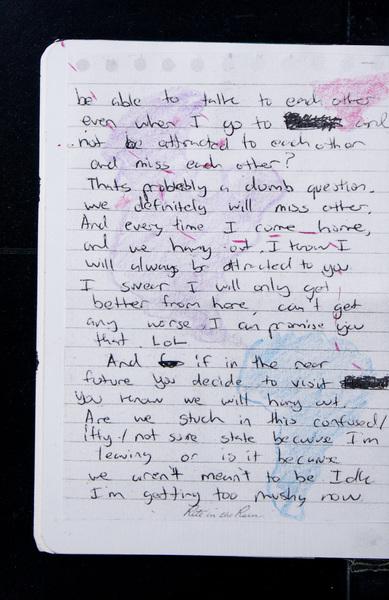 be able to talk to each other
even when I go to and
not be attracted to each other
and miss each other?
Thats probably a dumb question.
we definitely will miss other.
And every time I come home,
and we hang out. I know I
will always be attracted to you
I swear I will only get
better from here, can't get
any worse. I can promise you
that LoL
And if in the near
future you decide to visit
You know we will hang out.
Are we stuck in this confused/
iffy/not sure state because I'm
leaving or is it because
we aren't meant to be Idk
I'm getting too mushy now
Rite in the Rain